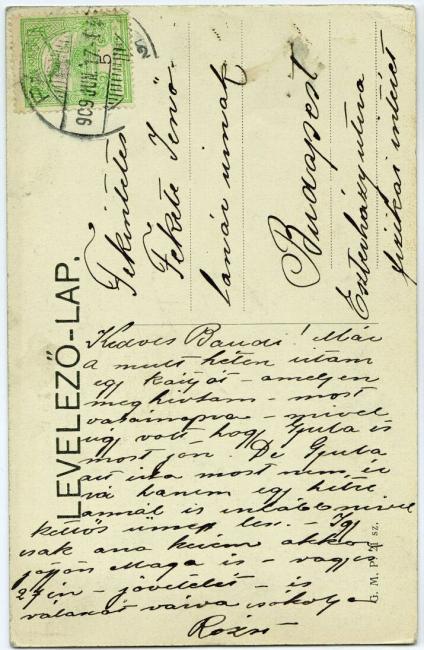 LEVELEZŐ-LAP.
909 JUN. 17.
5
Tekintetes
Fekete Jenő
tanár úrnak
Budapest
Eszterházy utca
fizikai intézet
Kedves Bandi! Már
a mult héten utam
egy kártyát - amelyen
meghívtam - most
vasárnapra - mivel
úgy volt, hogy Gyula is
most jön. De Gyula
azt írta most nem ér
rá hanem egy héttel
annál is inkább mivel
kettős ünnep lesz. - Így
csak arra kérem akkor
jöjjön Maga is - vagyis
27-én - jövetelét - is
válaszát várva csókolja
Rózsi
G. M. P. 21 sz.